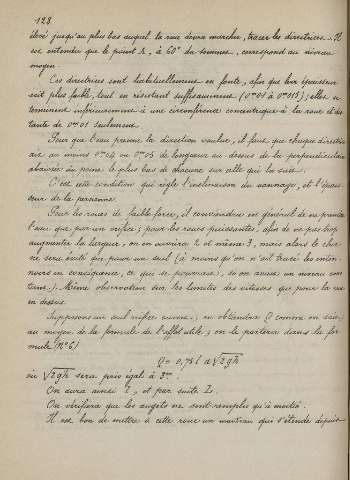 128
élevé jusqu'au plus bas auquel la roue devra marcher, tracer les directrices. Il
est entendu que le point A, à 60° du sommet, correspond au niveau
moyen.
Ces directrices sont habituellement en fonte, afin que leur épaisseur
soit plus faible, tout en résistant suffisamment (0m01 à 0m015); elles se
terminent inférieurement à une circonférence concentrique à la roue et dis-
tante de 0m01 seulement.
Pour que l'eau prenne la direction voulue, il faut que chaque directrice
ait au moins 0m04 ou 0m05 de longueur au dessus de la perpendiculaire
abaissée du point le plus bas de chacune sur celle qui la suit.
C'est cette condition qui règle l'inclinaison du vannage, et l'épais-
seur de la persienne.
Pour les roues de faible force, il conviendra en général de ne prendre
l'eau que par un orifice; pour les roues puissantes, afin de ne pas trop
augmenter la largeur, on en ouvrira 2 et même 3, mais alors le choc
ne sera évité que pour un seul (à moins qu'on n'ait tracé les
en conséquence, ce qui se pourrait, si on avait un niveau cons-
tant.). Même observation sur les limites des vitesses que pour la roue
en dessus.
Supposons un seul orifice ouvert; on obtiendra Q comme on sait,
au moyen de la formule de l'effet utile; on le portera dans la for-
mule (n°6)
Q = 0,75 l a √2gh
où √2gh sera pris égal à 3m
On aura ainsi l, et par suite L.
On vérifiera que les augets ne sont remplis qu'à moitié.
Il est bon de mettre à cette roue un manteau qui s'étende depuis